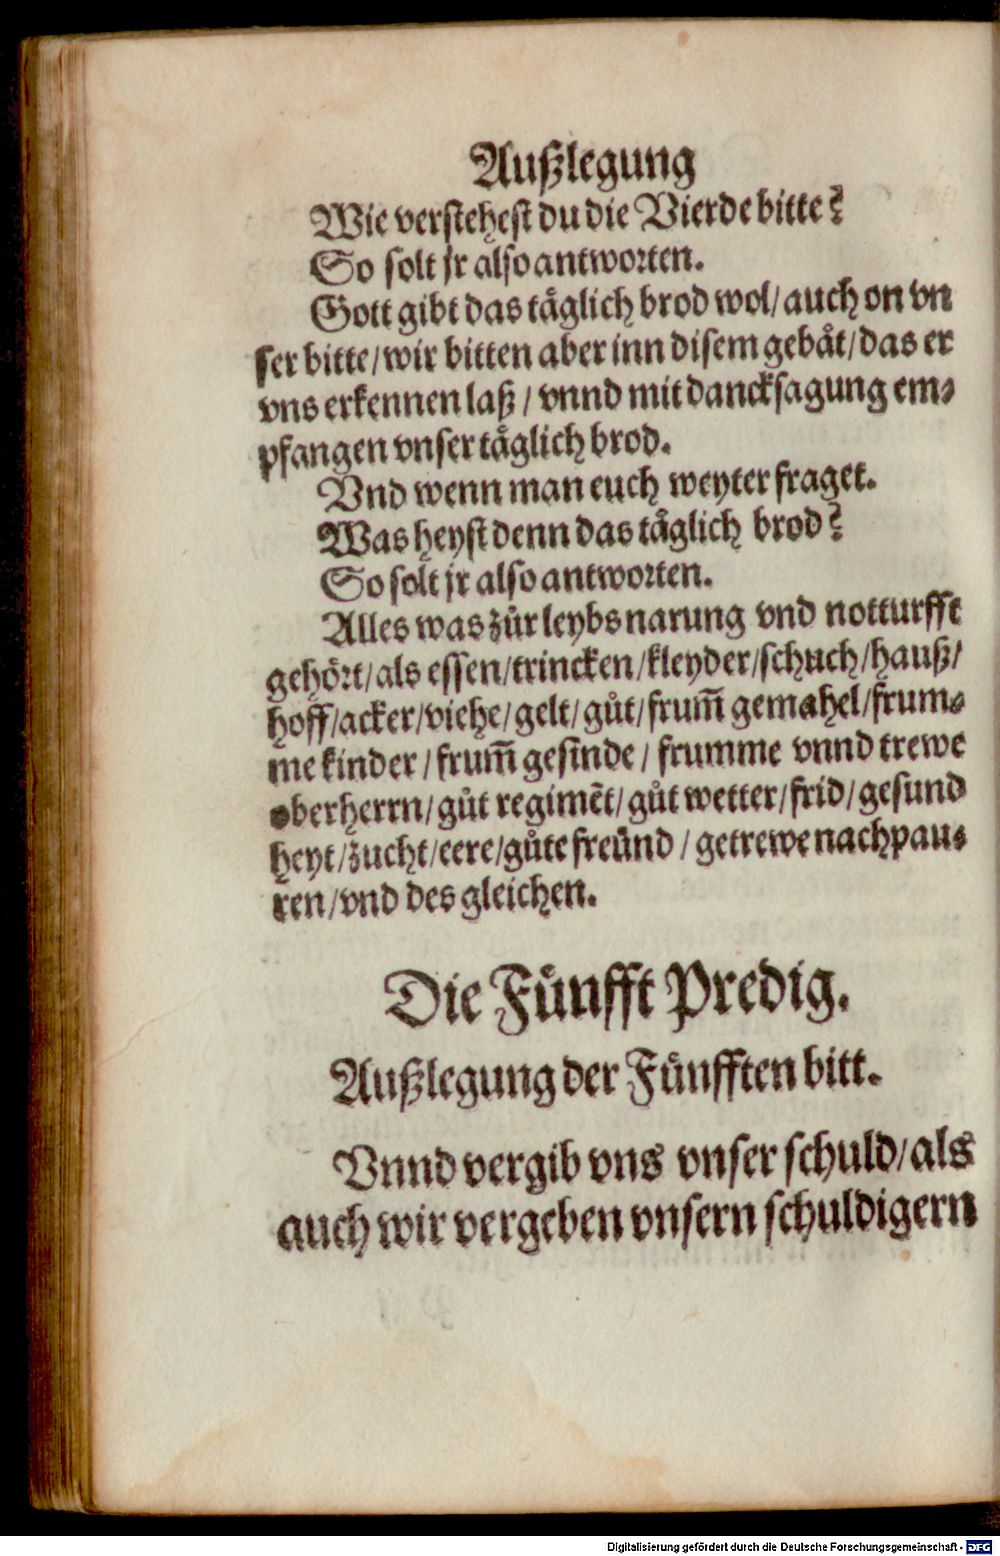 Außlegung
Wie verstehest du die Vierde bitte?
So solt jr also antworten.
Gott gibt das täglich brod wol/ auch on vn
ser bitte/ wir bitten aber inn disem gebät/ das er
vns erkennen laß/ vnnd mit dancksagung em⸗
pfangen vnser täglich brod.
Vnd wenn man euch weyter fraget.
Was heyst denn das täglich brod?
So solt jr also antworten.
Alles was zůr leybs narung vnd notturfft
gehört/ als essen/ trincken/ kleyder/ schuch/ hauß/
hoff/ acker/ viehe/ gelt/ gůt/ frum̃ gemahel/ frum⸗
me kinder/ frum̃ gesinde/ frumme vnnd trewe
oberherrn/ gůt regimẽt/ gůt wetter/ frid/ gesund
heyt/ zucht/ eere/ gůte freünd/ getrewe nachpau⸗
ren/ vnd des gleichen.
Die Fünfft Predig.
Außlegung der Fünfften bitt.
Vnnd vergib vns vnser schuld/ als
auch wir vergeben vnsern schuldigern
Digitalisierung gefördert durch die Deutsche Forschungsgemeinschaft - DFG